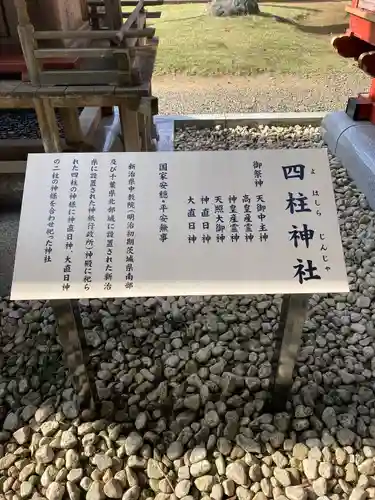 よ はしら じんじゃ
四柱神社
御祭神 天御中主神
高皇産霊神
神皇産霊神
天照大御神
神直日神
大直日神
国家安穏・平安無事
新治県中教院(明治初期茨城県南部
及び千葉県北部域に設置された新治
県に設置された神祇行政所)神殿に祀ら
れた四柱の神様に神直日神、大直日神
の二社の神様を合わせ祀った神社